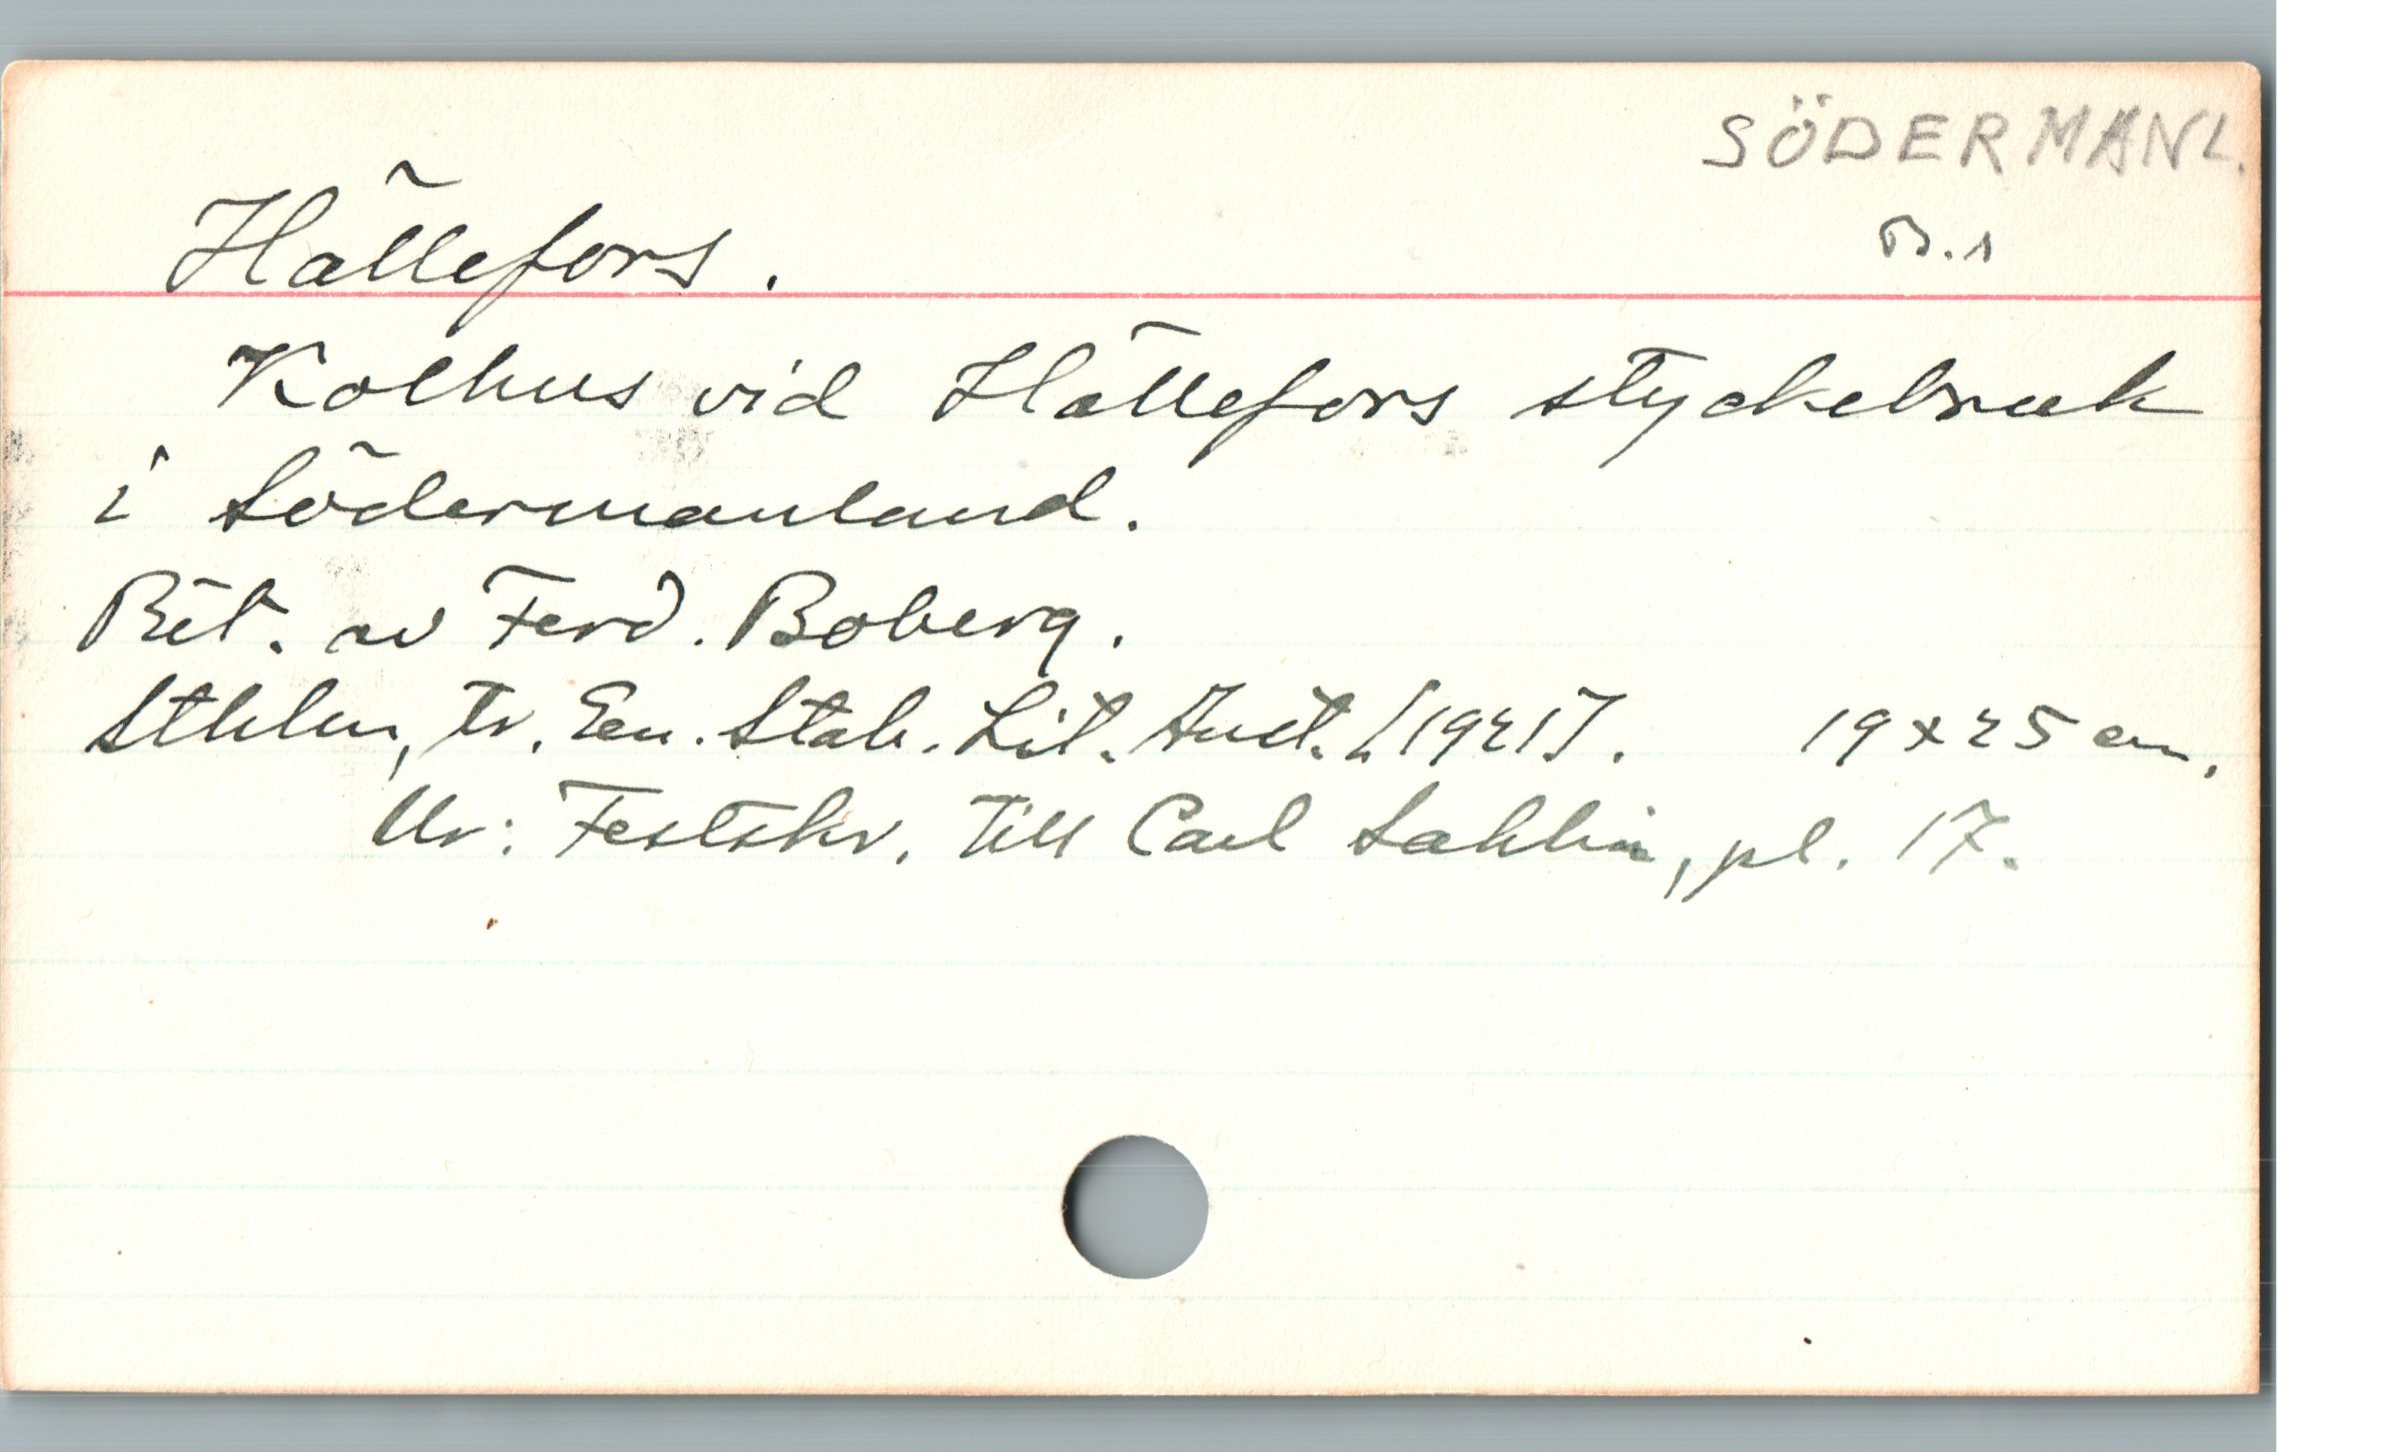 SÖDERMANL.
B.1
Hällefors.
Kolhus vid Hällefors styckebruk
i Södermanland.
Rit. av Ferd. Boberg.
Sthlm, tr. Gen. Stab. Lit. Anst. [1921]. 19 x 25 cm.
Ur: Festskr. till Carl Sahlin, pl. 17.